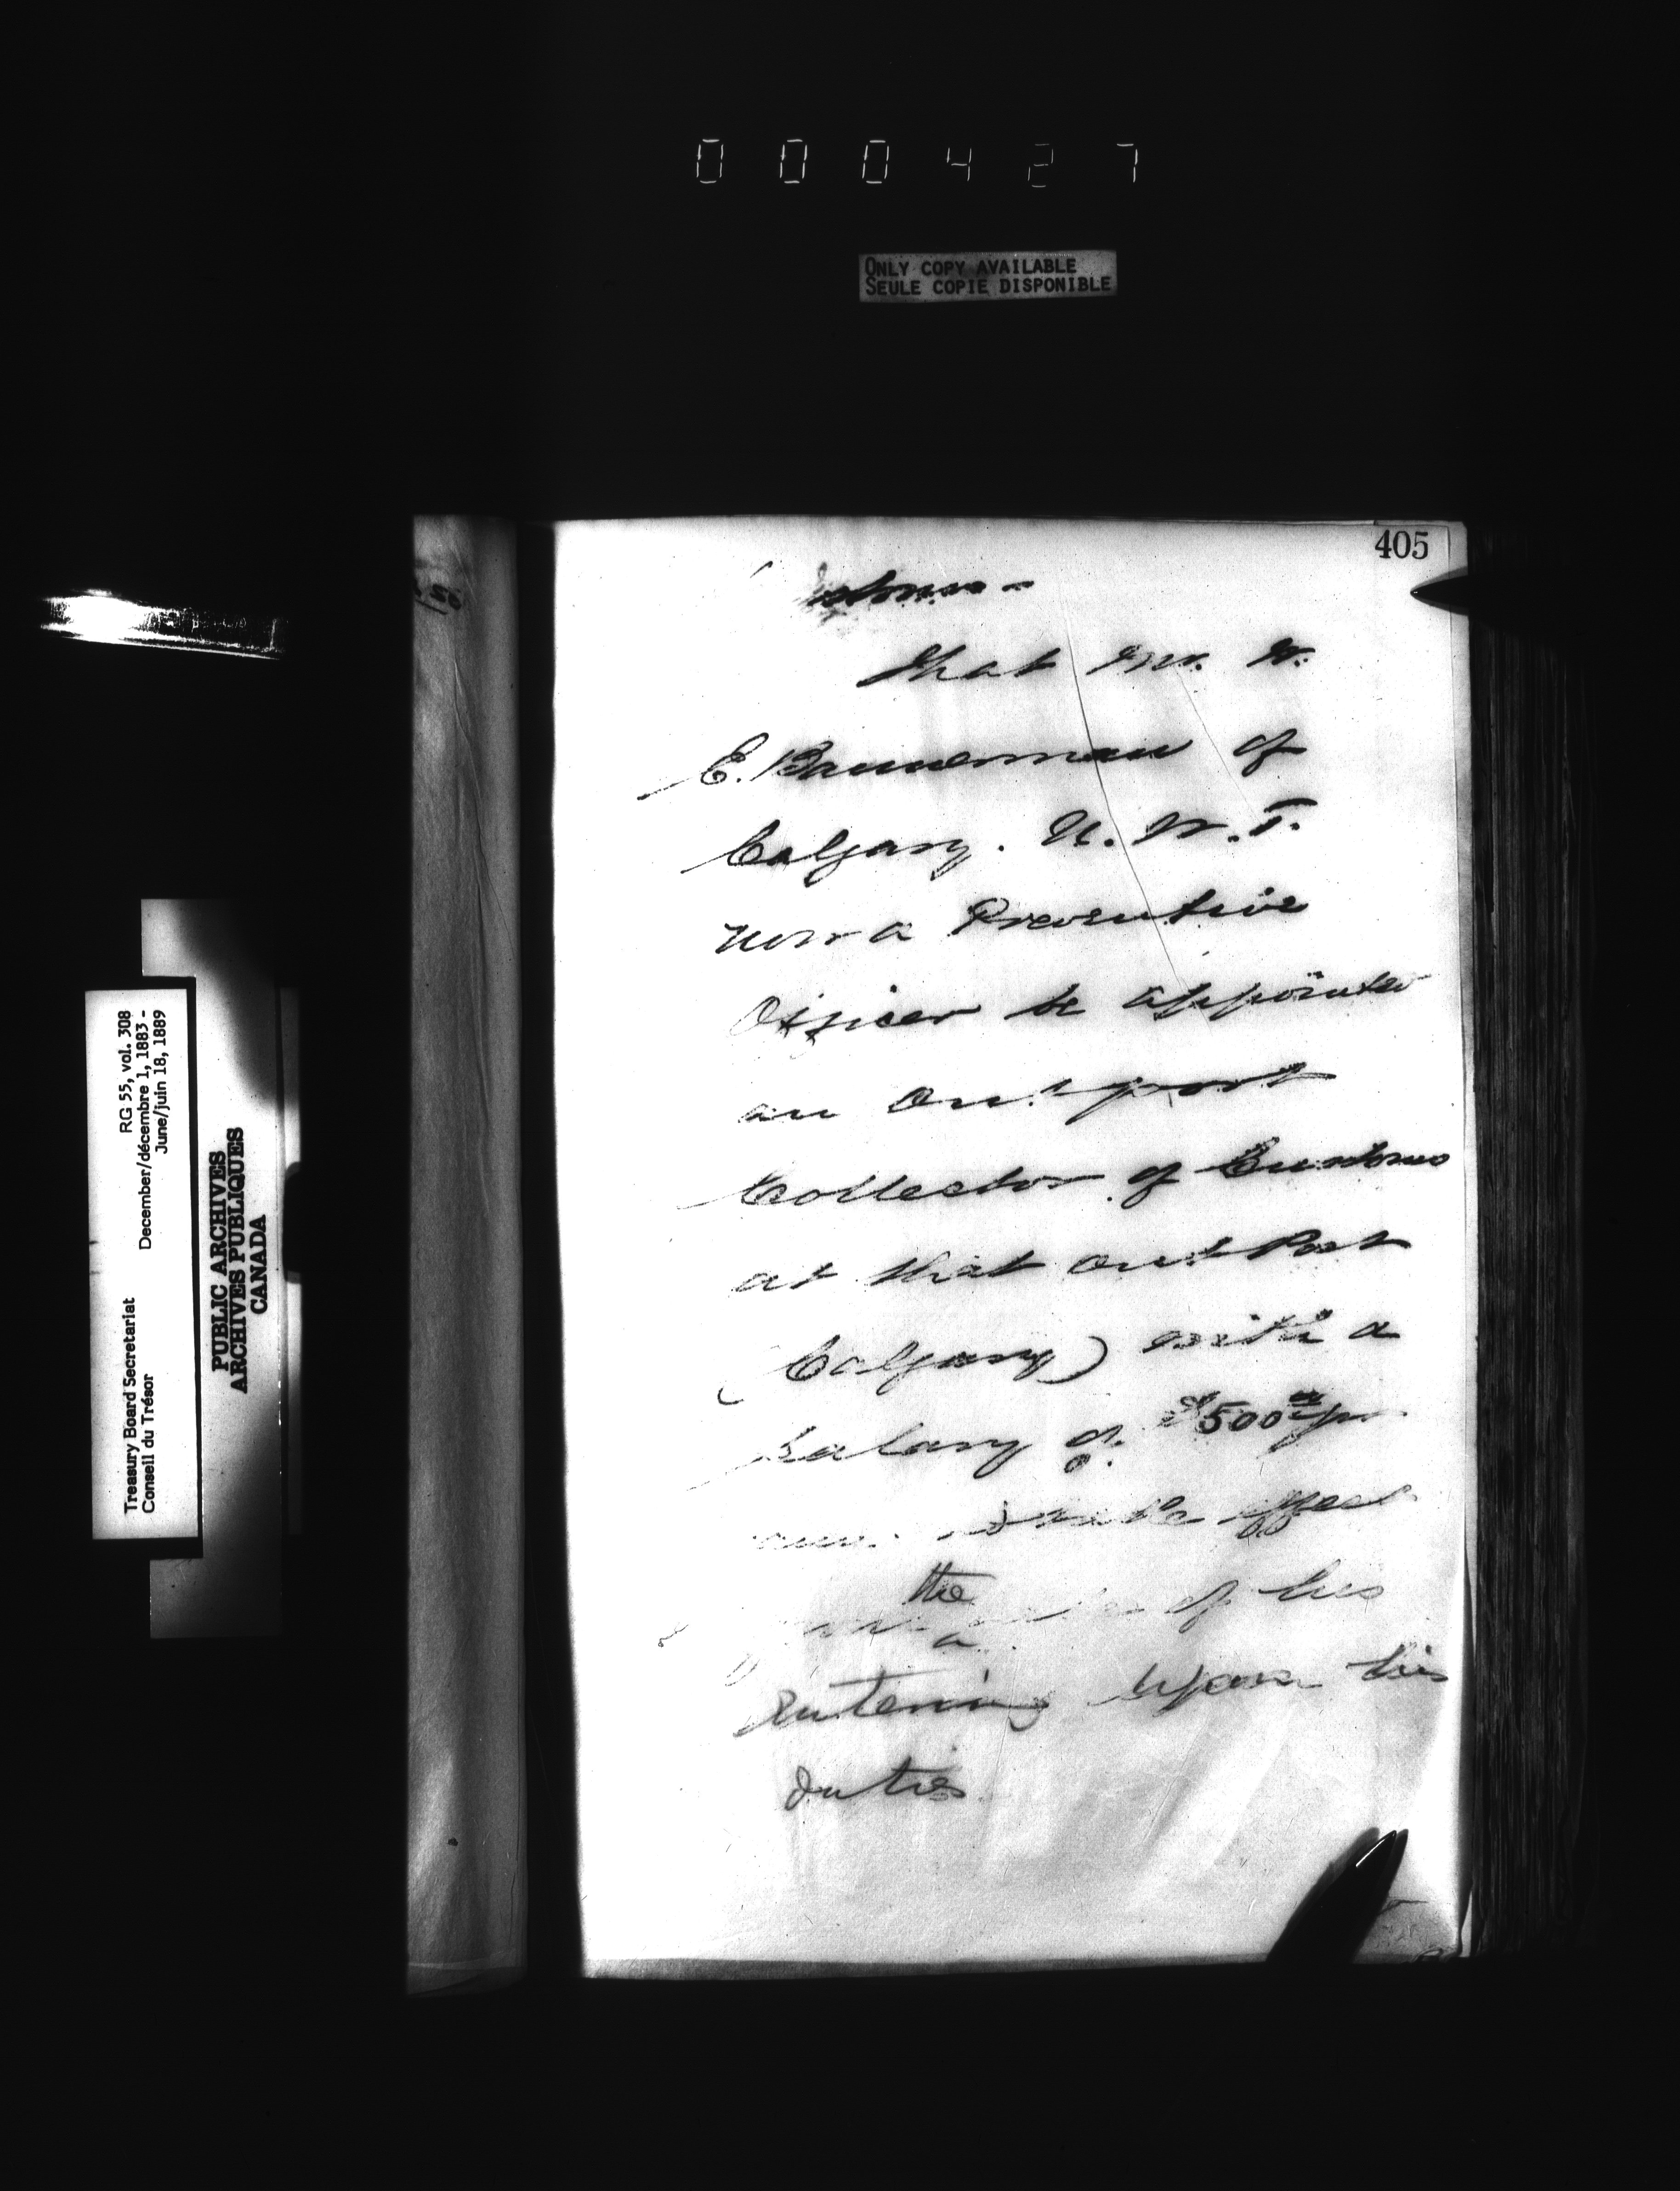 000427
ONLY COPY AVAILABLE
SEULE COPIE DISPONIBLE
405
Customs -
That Mr. W.
E. Bannerman of
Calgary. N. W. T.
now a Preventive
Officer be appointed
an Outport
Collector of Customs
at that Out Port
(Calgary) with a
Salary of $500 00 per
ann. to take effect
from the date of his
entering upon his
duties
Treasury Board Secretariat RG 55, vol. 308
Conseil du Trésor December/décembre 1, 1883 -
June/juin 18, 1889
PUBLIC ARCHIVES
ARCHIVES PUBLIQUES
CANADA